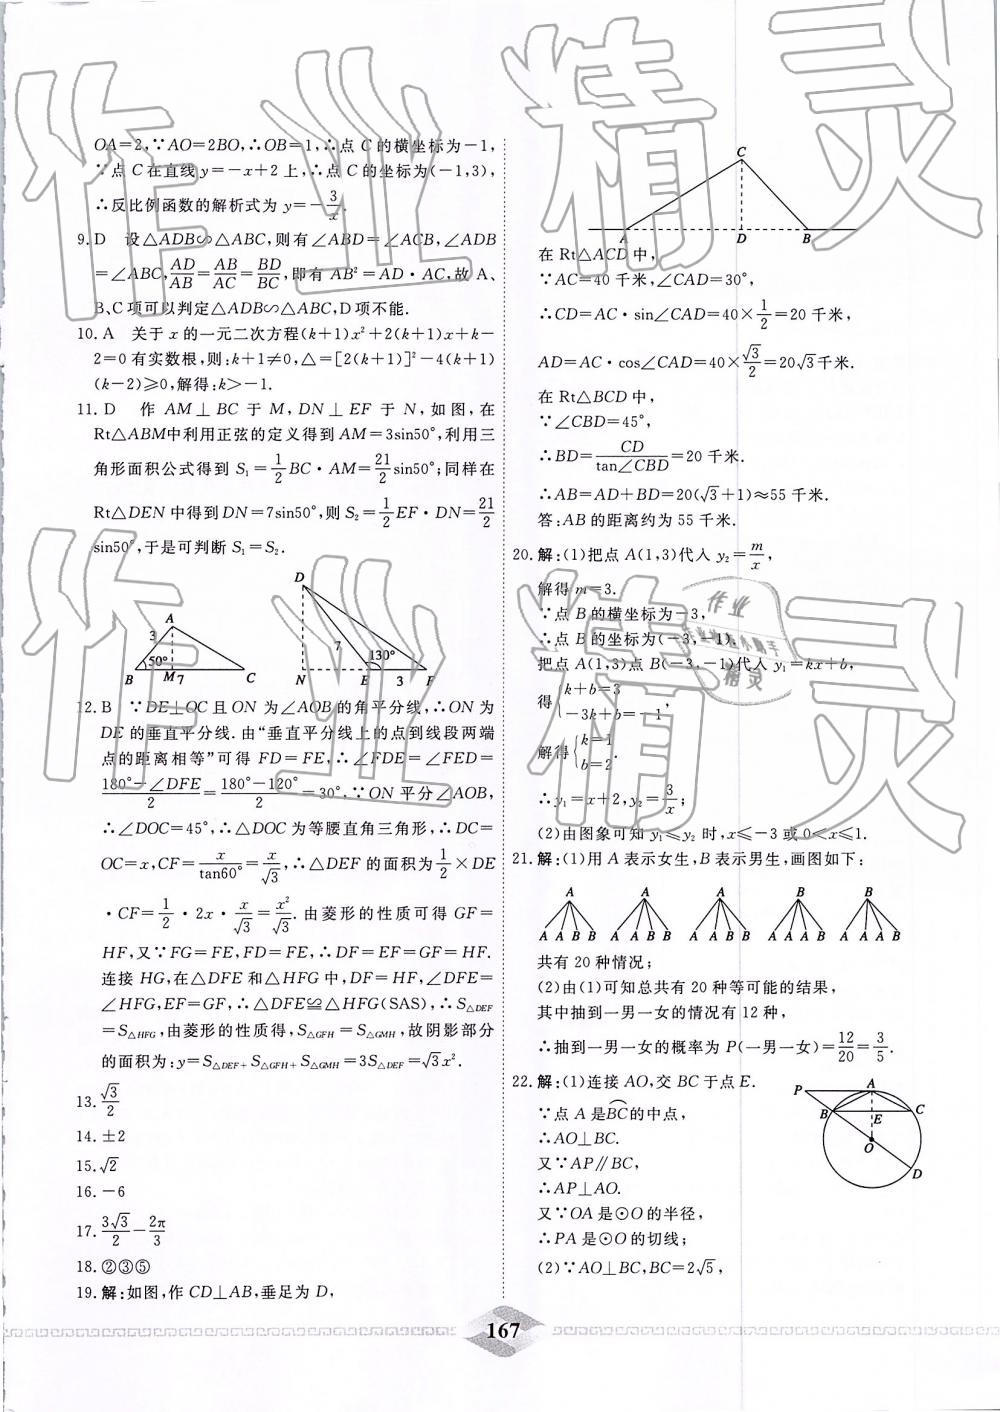 OA=2,∵AO=2BO,∴OB=1,∴点C的横坐标为-1,
∵点C在直线y=-x+2上,∴点C的坐标为(-1,3),
∴反比例函数的解析式为y=-3/x.
9.D 设△ADB∽△ABC,则有∠ABD=∠ACB,∠ADB
=∠ABC,AD/AB=AB/AC=BD/BC,即有AB²=AD·AC,故A、
B、C项可以判定△ADB∽△ABC,D项不能.
10.A 关于x的一元二次方程(k+1)x²+2(k+1)x+k-
2=0有实数根,则:k+1≠0,△=[2(k+1)]²-4(k+1)
(k-2)≥0,解得:k>-1.
11.D 作AM⊥BC于M,DN⊥EF于N,如图,在
Rt△ABM中利用正弦的定义得到AM=3sin50°,利用三
角形面积公式得到S₁=1/2BC·AM=21/2sin50°;同样在
Rt△DEN中得到DN=7sin50°,则S₂=1/2EF·DN=21/2
sin50°,于是可判断S₁=S₂.
A 3 50° B M 7 C
D 7 130° N E 3 F
12.B ∵DE⊥OC且ON为∠AOB的角平分线,∴ON为
DE的垂直平分线.由“垂直平分线上的点到线段两端
点的距离相等”可得FD=FE,∴∠FDE=∠FED=
(180°-∠DFE)/2=(180°-120°)/2=30°,∵ON平分∠AOB,
∴∠DOC=45°,∴△DOC为等腰直角三角形,∴DC=
OC=x,CF=x/tan60°=x/√3,∴△DEF的面积为1/2×DE
·CF=1/2·2x·x/√3=x²/√3.由菱形的性质可得GF=
HF,又∵FG=FE,FD=FE,∴DF=EF=GF=HF.
连接HG,在△DFE和△HFG中,DF=HF,∠DFE=
∠HFG,EF=GF,∴△DFE≌△HFG(SAS),∴S△DEF
=S△HFG,由菱形的性质得,S△GFH=S△GMH,故阴影部分
的面积为:y=S△DEF+S△GFH+S△GMH=3S△DEF=√3x².
13.√3/2
14.±2
15.√2
16.-6
17.3√3/2-2π/3
18.②③⑤
19.解:如图,作CD⊥AB,垂足为D,
C A D B
在Rt△ACD中,
∵AC=40千米,∠CAD=30°,
∴CD=AC·sin∠CAD=40×1/2=20千米,
AD=AC·cos∠CAD=40×√3/2=20√3千米.
在Rt△BCD中,
∵∠CBD=45°,
∴BD=CD/tan∠CBD=20千米.
∴AB=AD+BD=20(√3+1)≈55千米.
答:AB的距离约为55千米.
20.解:(1)把点A(1,3)代入y₂=m/x,
解得m=3.
∵点B的横坐标为-3,
∴点B的坐标为(-3,-1).
把点A(1,3)点B(-3,-1)代入y₁=kx+b,
得{k+b=3
-3k+b=-1,
解得{k=1
b=2.
∴y₁=x+2,y₂=3/x;
(2)由图象可知y₁≤y₂时,x≤-3或0<x≤1.
21.解:(1)用A表示女生,B表示男生,画图如下:
A A A B B
A A B B A A B B A A B B A A A B A A A B
共有20种情况;
(2)由(1)可知总共有20种等可能的结果,
其中抽到一男一女的情况有12种,
∴抽到一男一女的概率为P(一男一女)=12/20=3/5.
22.解:(1)连接AO,交BC于点E.
∵点A是BC的中点,
∴AO⊥BC.
又∵AP∥BC,
∴AP⊥AO.
又∵OA是⊙O的半径,
∴PA是⊙O的切线;
(2)∵AO⊥BC,BC=2√5,
P A B E C O D
167
作业精灵
作业精灵